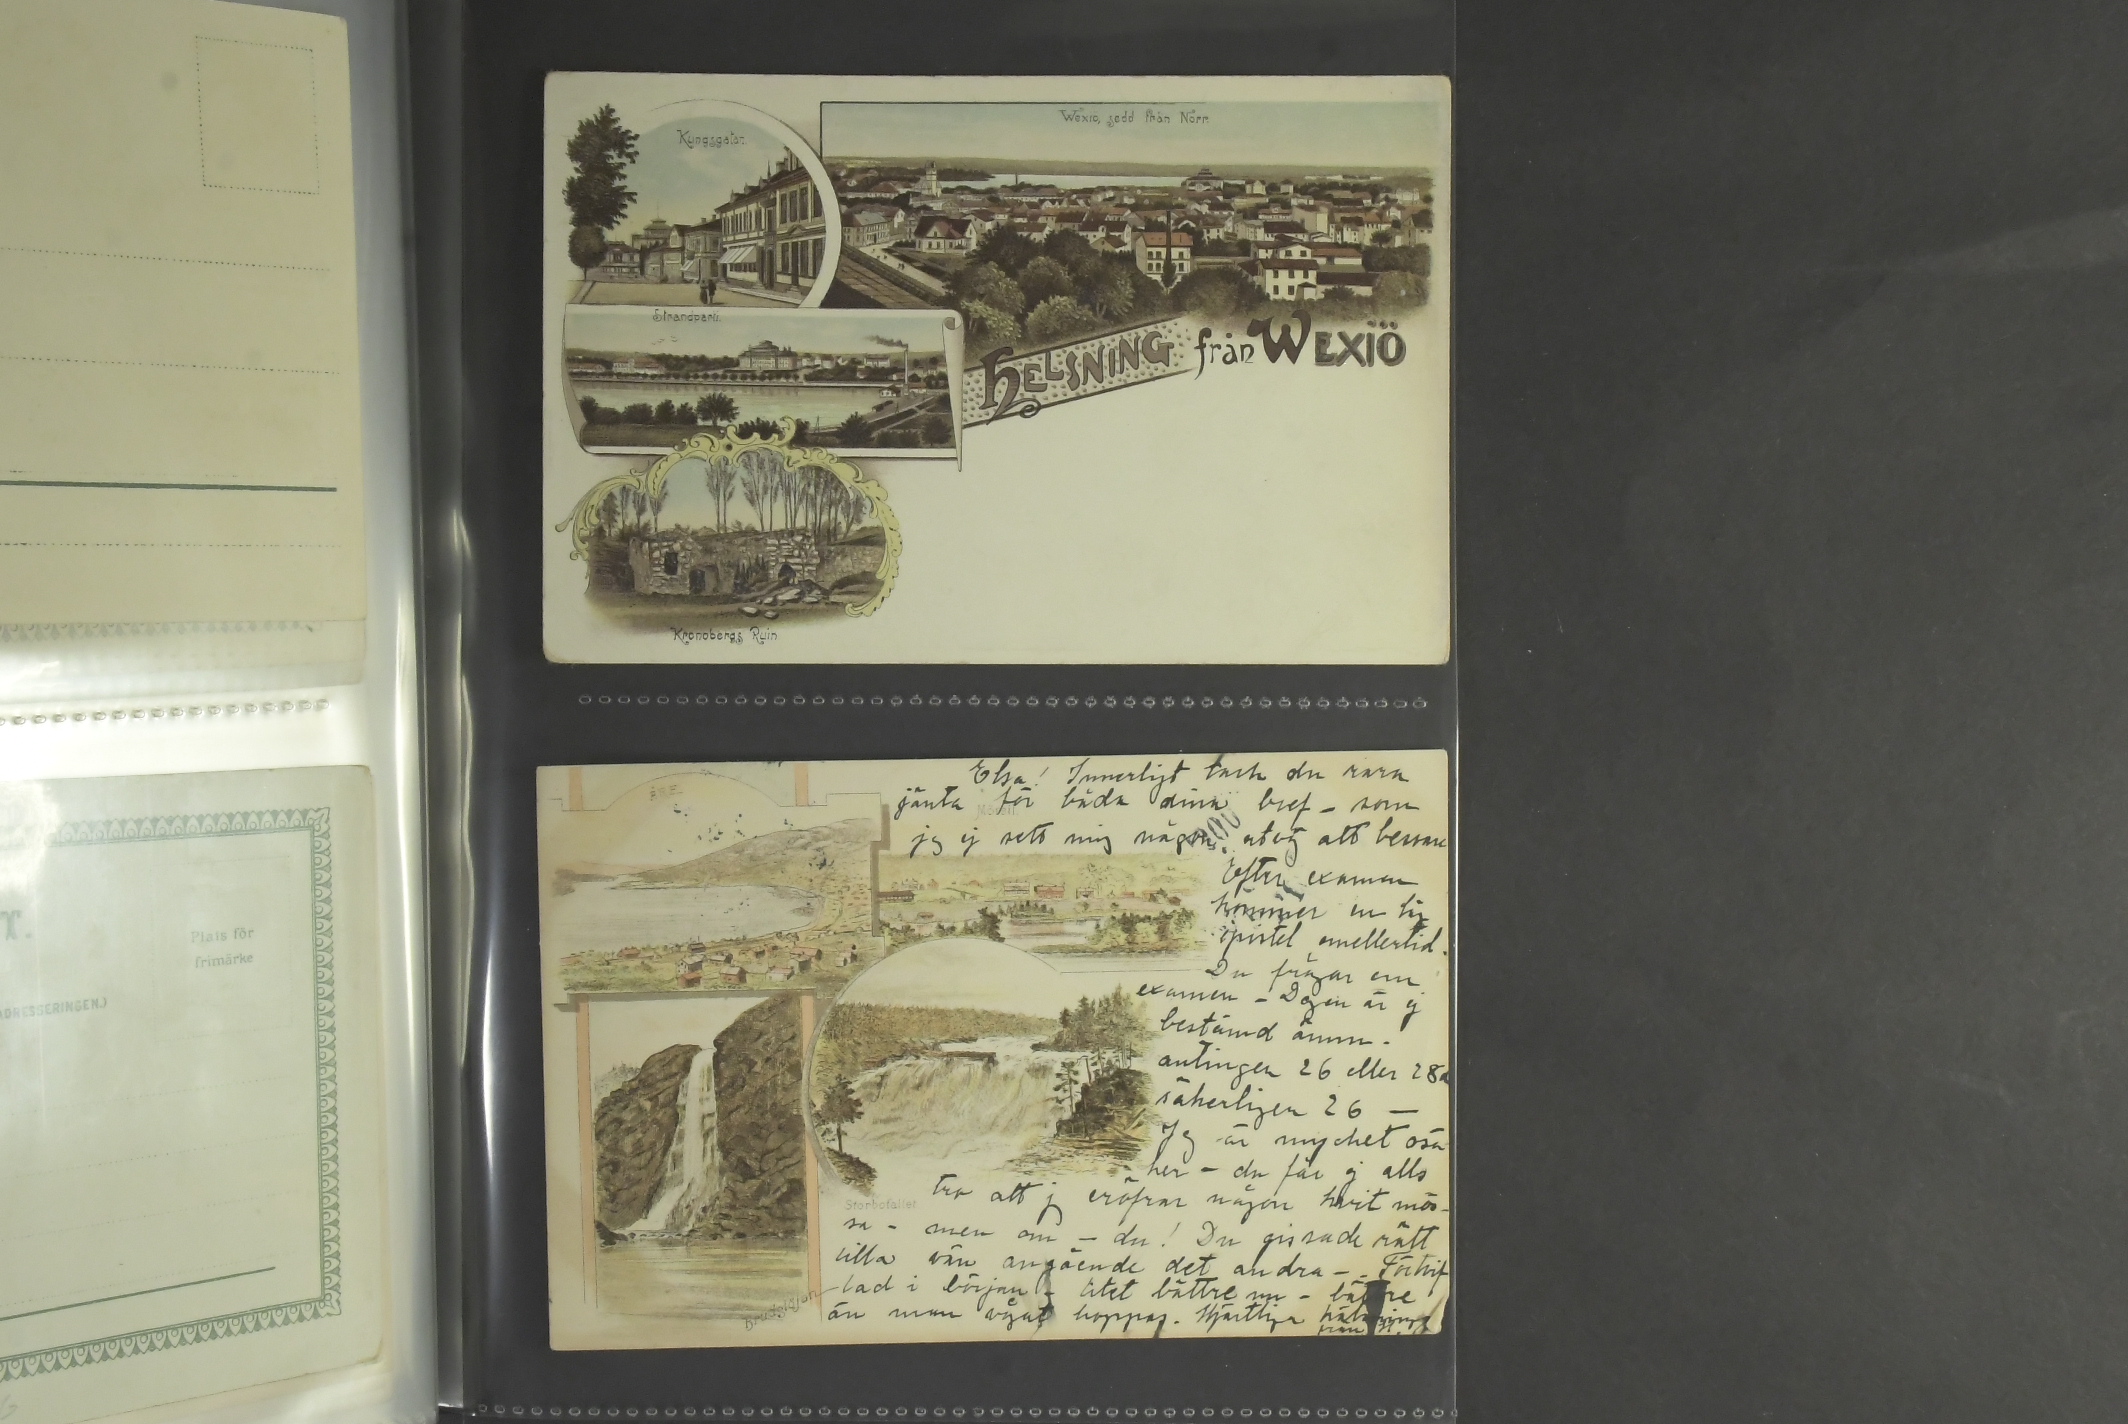 Kungsgatan.
Wexiö, sedd från Norr.
Strandparti.
Helsning från Wexiö
Kronobergs Ruin
T.
Plats för
frimärke
ADRESSERINGEN.)
ÅRE.
Mörsil.
Storbofallet
Brudslöjan
Elsa! Innerligt tack du rara
jänta för båda dina bref – som
jag ej sett mig någon utväg att besvara
Efter examen
kommer en
epistel emellertid.
Du frågar om
examen – Dagen är ej
bestämd ännu.
antingen 26 eller 28
säkerligen 26 —
Jag är mycket osä
ker – du får ej alls
tro att jag eröfrar någon hvit mös-
sa – men om – du! Du gissade rätt
lilla vän angående det andra – Förtvif
lad i början – litet bättre nu – bättre
än man vågat hoppas. Hjärtliga hälsningar
från